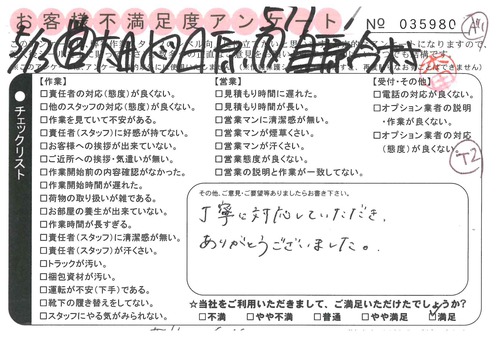 お客様不満足度アンケート
№ 035980
A1
チェックリスト
【作業】
□責任者の対応(態度)が良くない。
□他のスタッフの対応(態度)が良くない。
□作業を見ていて不安がある。
□責任者(スタッフ)に好感が持てない。
□お客様への挨拶が出来ていない。
□ご近所への挨拶・気遣いが無い。
□作業開始前の内容確認がなかった。
□作業開始時間が遅れた。
□荷物の取り扱いが雑である。
□お部屋の養生が出来ていない。
□作業時間が長すぎる。
□責任者(スタッフ)に清潔感が無い。
□責任者(スタッフ)が汗くさい。
□トラックが汚い。
□梱包資材が汚い。
□運転が不安(下手)である。
□靴下の履き替えをしてない。
□スタッフにやる気がみられない。
【営業】
□見積もり時間に遅れた。
□見積もり時間が長い。
□営業マンに清潔感が無い。
□営業マンが煙草くさい。
□営業マンが汗くさい。
□営業態度が良くない。
□営業の説明と作業が一致してない。
【受付・その他】
□電話の対応が良くない。
□オプション業者の説明
・作業が良くない。
□オプション業者の対応
(態度)が良くない。
T2
その他、ご意見・ご要望等ありましたらお書き下さい。
丁寧に対応していただき、
ありがとうございました。
☆当社をご利用いただきまして、ご満足いただけたでしょうか?
□不満 □やや不満 □普通 □やや満足 ☑満足